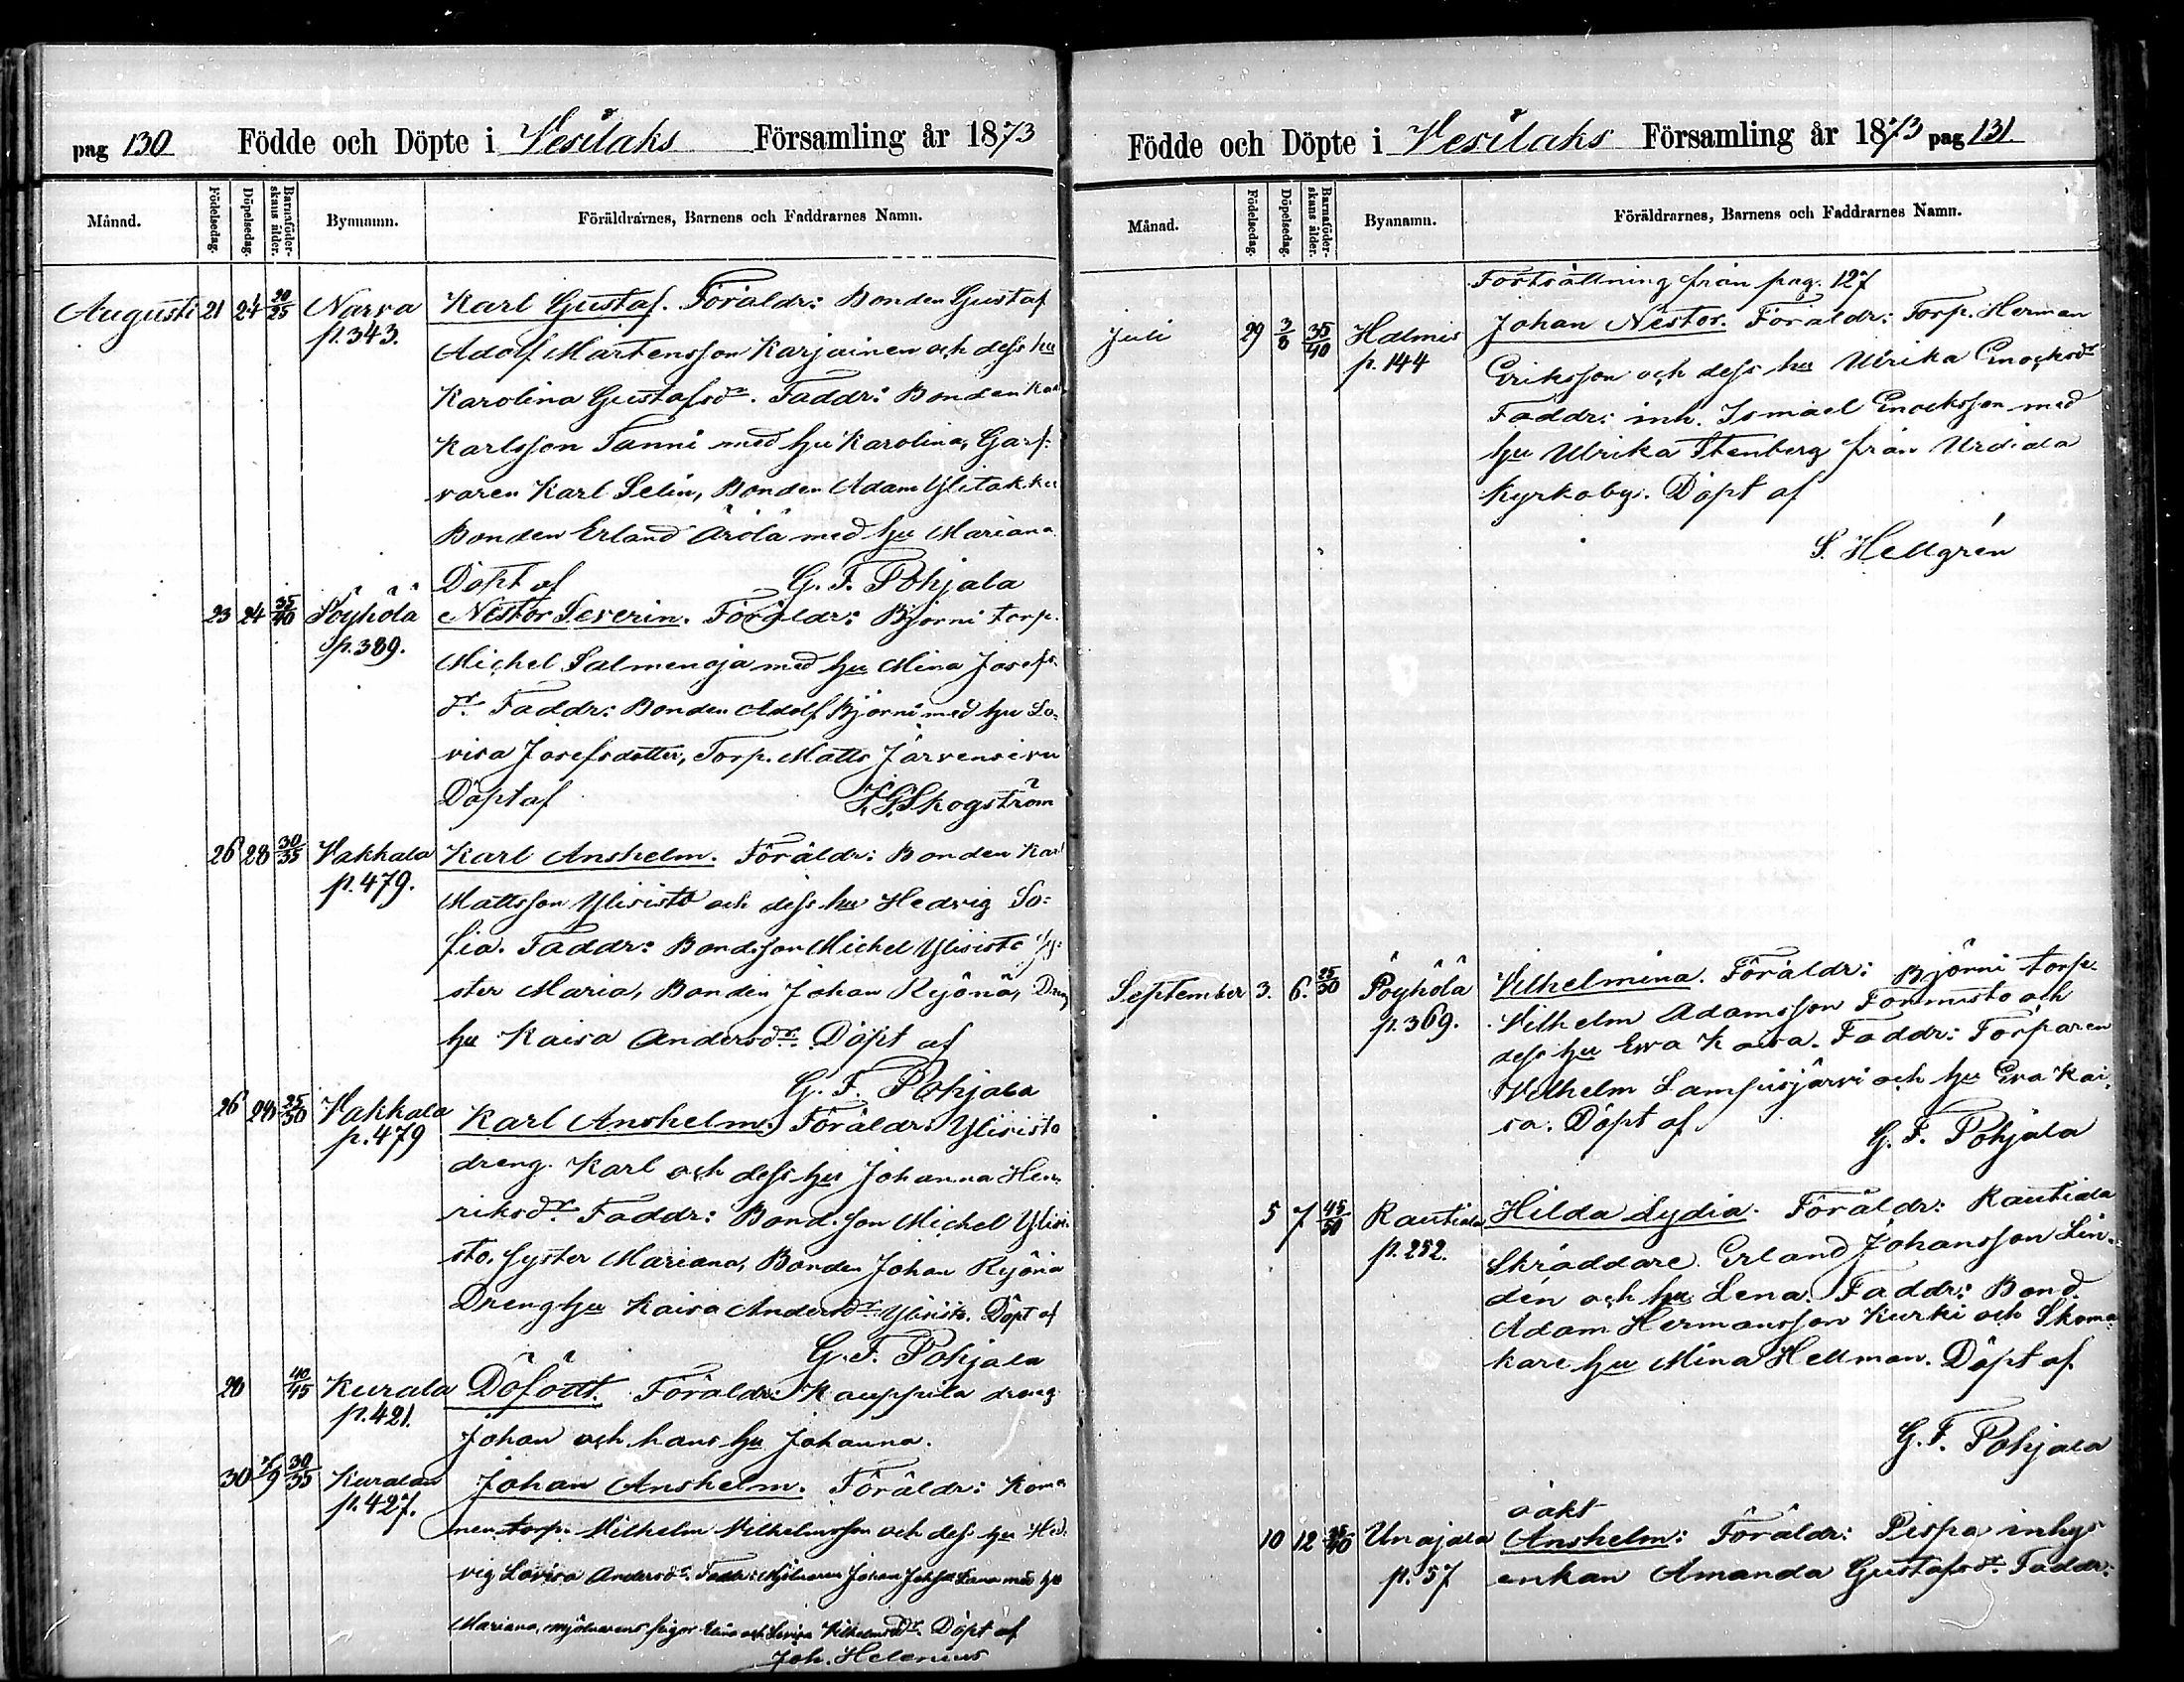 pag 130 Födde och Döpte i Vesilaks Församling år 1873
Månad. Födelsedag. Döpelsedag. Barnaföderskans ålder. Bynamn. Föräldrarnes, Barnens och Faddrarnes Namn.
Augusti 21 24 20/25 Narva Karl Gustaf. Föräldr: Bonden Gustaf
p. 343. Adolf Mårtensson Karjainen och dess hu
Karolina Gustafsdr. Faddr: Bonden Karl
Karlsson Tanni med hu Karolina, Garf-
varen Karl Selin, Bonden Adam Ylitakku
Bonden Erland Ärölä med hu Mariana
Döpt af G. F. Pohjala
23 24 35/40 Pöyhölä Nestor Severin. Föräldr: Björni torp.
p. 389. Michel Salmenoja med hu Mina Josefs
dr. Faddr: Bonden Adolf Björni med hu Lo-
visa Josefsdotter, Torp. Matts Järvensivu
Döpt af K G Skogström
26 28 30/35 Vakkala Karl Anshelm. Föräldr: Bonden Karl
p. 479. Mattsson Ylisisto och dess hu Hedvig So-
fia. Faddr: Bondsson Michel Ylisisto sy-
ster Maria, Bonden Johan Ryönä, Dreng
hu Kaisa Andersdr. Döpt af
G. F. Pohjala
26 28 25/30 Vakkala Karl Anshelm. Föräldr: Ylisisto
p. 479 dreng Karl och dess hu Johanna Hen-
riksdr. Faddr: Bond. son Michel Ylisi-
sto, syster Mariana, Bonden Johan Ryönä
Dreng hu Kaisa Andersdr Ylisisto. Döpt af
G. F. Pohjala
28 40/45 Kurala Döfödt. Föräldr: Kauppila dreng
p. 421. Johan och hans hu Johanna.
30 7/9 30/35 Kurala Johan Anshelm. Föräldr: Koma
p. 427. nen torp. Vilhelm Vilhelmsson och dess hu Hed-
vig Lovisa Andersdr. Faddr: Mjölnaren Johan med hu
Mariana, mjölnarens och Lovisa Vilhelmsdr. Döpt af
Joh. Helenius
Födde och Döpte i Vesilaks Församling år 1873 pag 131.
Månad. Födelsedag. Döpelsedag. Barnaföderskans ålder. Bynamn. Föräldrarnes, Barnens och Faddrarnes Namn.
Fortsättning från pag. 127
Juli 29 3/8 35/40 Halmis Johan Nestor. Föräldr: Torp. Herman
p. 144 Eriksson och dess hu Ulrika Enoksdr
Faddr: inh. Ismael Enoksson med
hu Ulrika Stenberg från Urdiala
Kyrkoby. Döpt af
S. Hellgrén
September 3. 6. 25/30 Pöyhölä Vilhelmina. Föräldr: Björni torp.
p. 369. Vilhelm Adamsson Tommisto och
dess hu Eva Kaisa. Faddr: Torparen
Vilhelm Lampisjärvi och hu Eva Kai-
sa. Döpt af G. F. Pohjala
5 7 45/50 Rautiala Hilda Lydia. Föräldr: Rautiala
p. 252. Skräddare Erland Johansson Lin-
dén och hu Lena. Faddr: Bond.
Adam Hermansson Kurki och Skoma-
kare hu Mina Hellman. Döpt af
G. F. Pohjala
oäkt
10 12 35/40 Unajala Anshelm: Föräldr: Pispa inhys
p. 57 enkan Amanda Gustafsdr. Faddr: